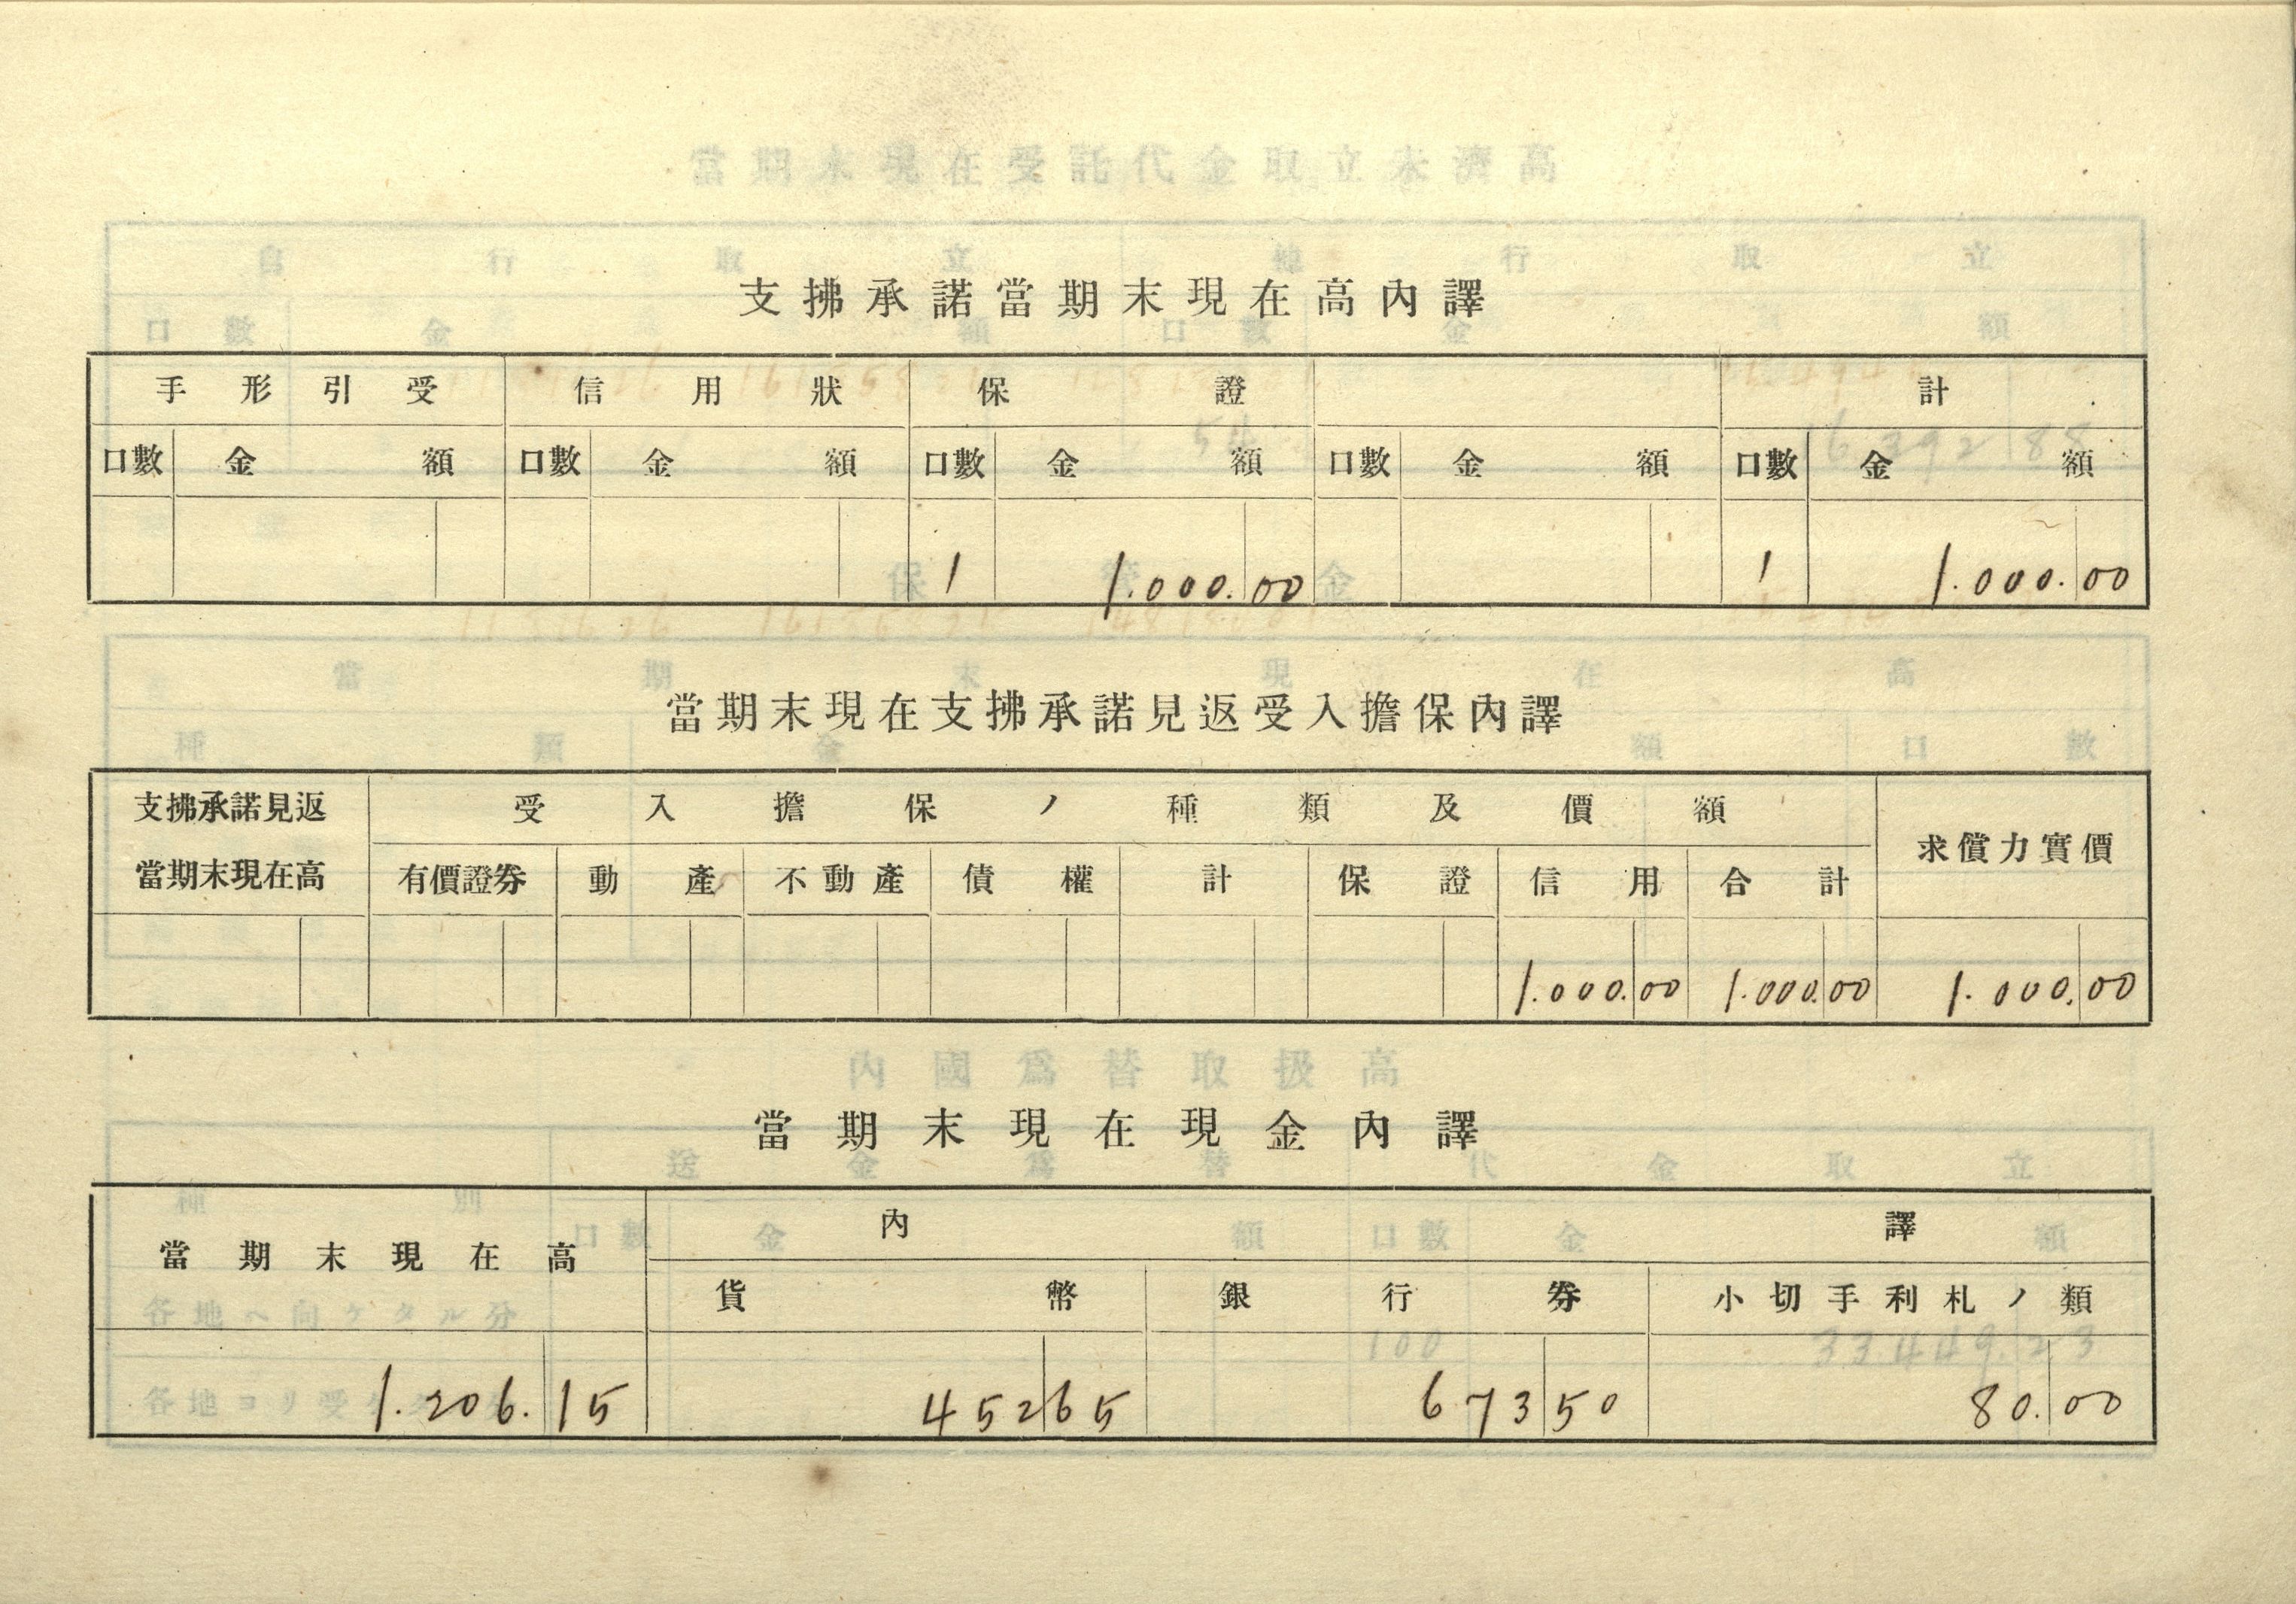 支拂承諾當期末現在高內譯
手形引受 信用狀 保證 計
口數 金額 口數 金額 口數 金額 口數 金額 口數 金額
1 1.000.00 1 1.000.00
當期末現在支拂承諾見返受入擔保內譯
支拂承諾見返 受入擔保ノ種類及價額 求償力實價
當期末現在高 有價證券 動產 不動產 債權 計 保證 信用 合計
1.000.00 1.000.00 1.000.00
當期末現在現金內譯
當期末現在高 內譯
貨幣 銀行券 小切手利札ノ類
1.206.15 452 65 673 50 80.00